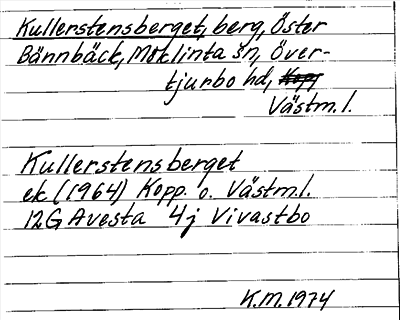 Kullerstensberget, berg, Öster
Bännbäck, Möklinta sn, Över-
tjurbo hd, Kopp
Västm. l.
Kullerstensberget
ek (1964) Kopp. o. Västm.l.
12G Avesta 4j Vivastbo
K.M. 1974